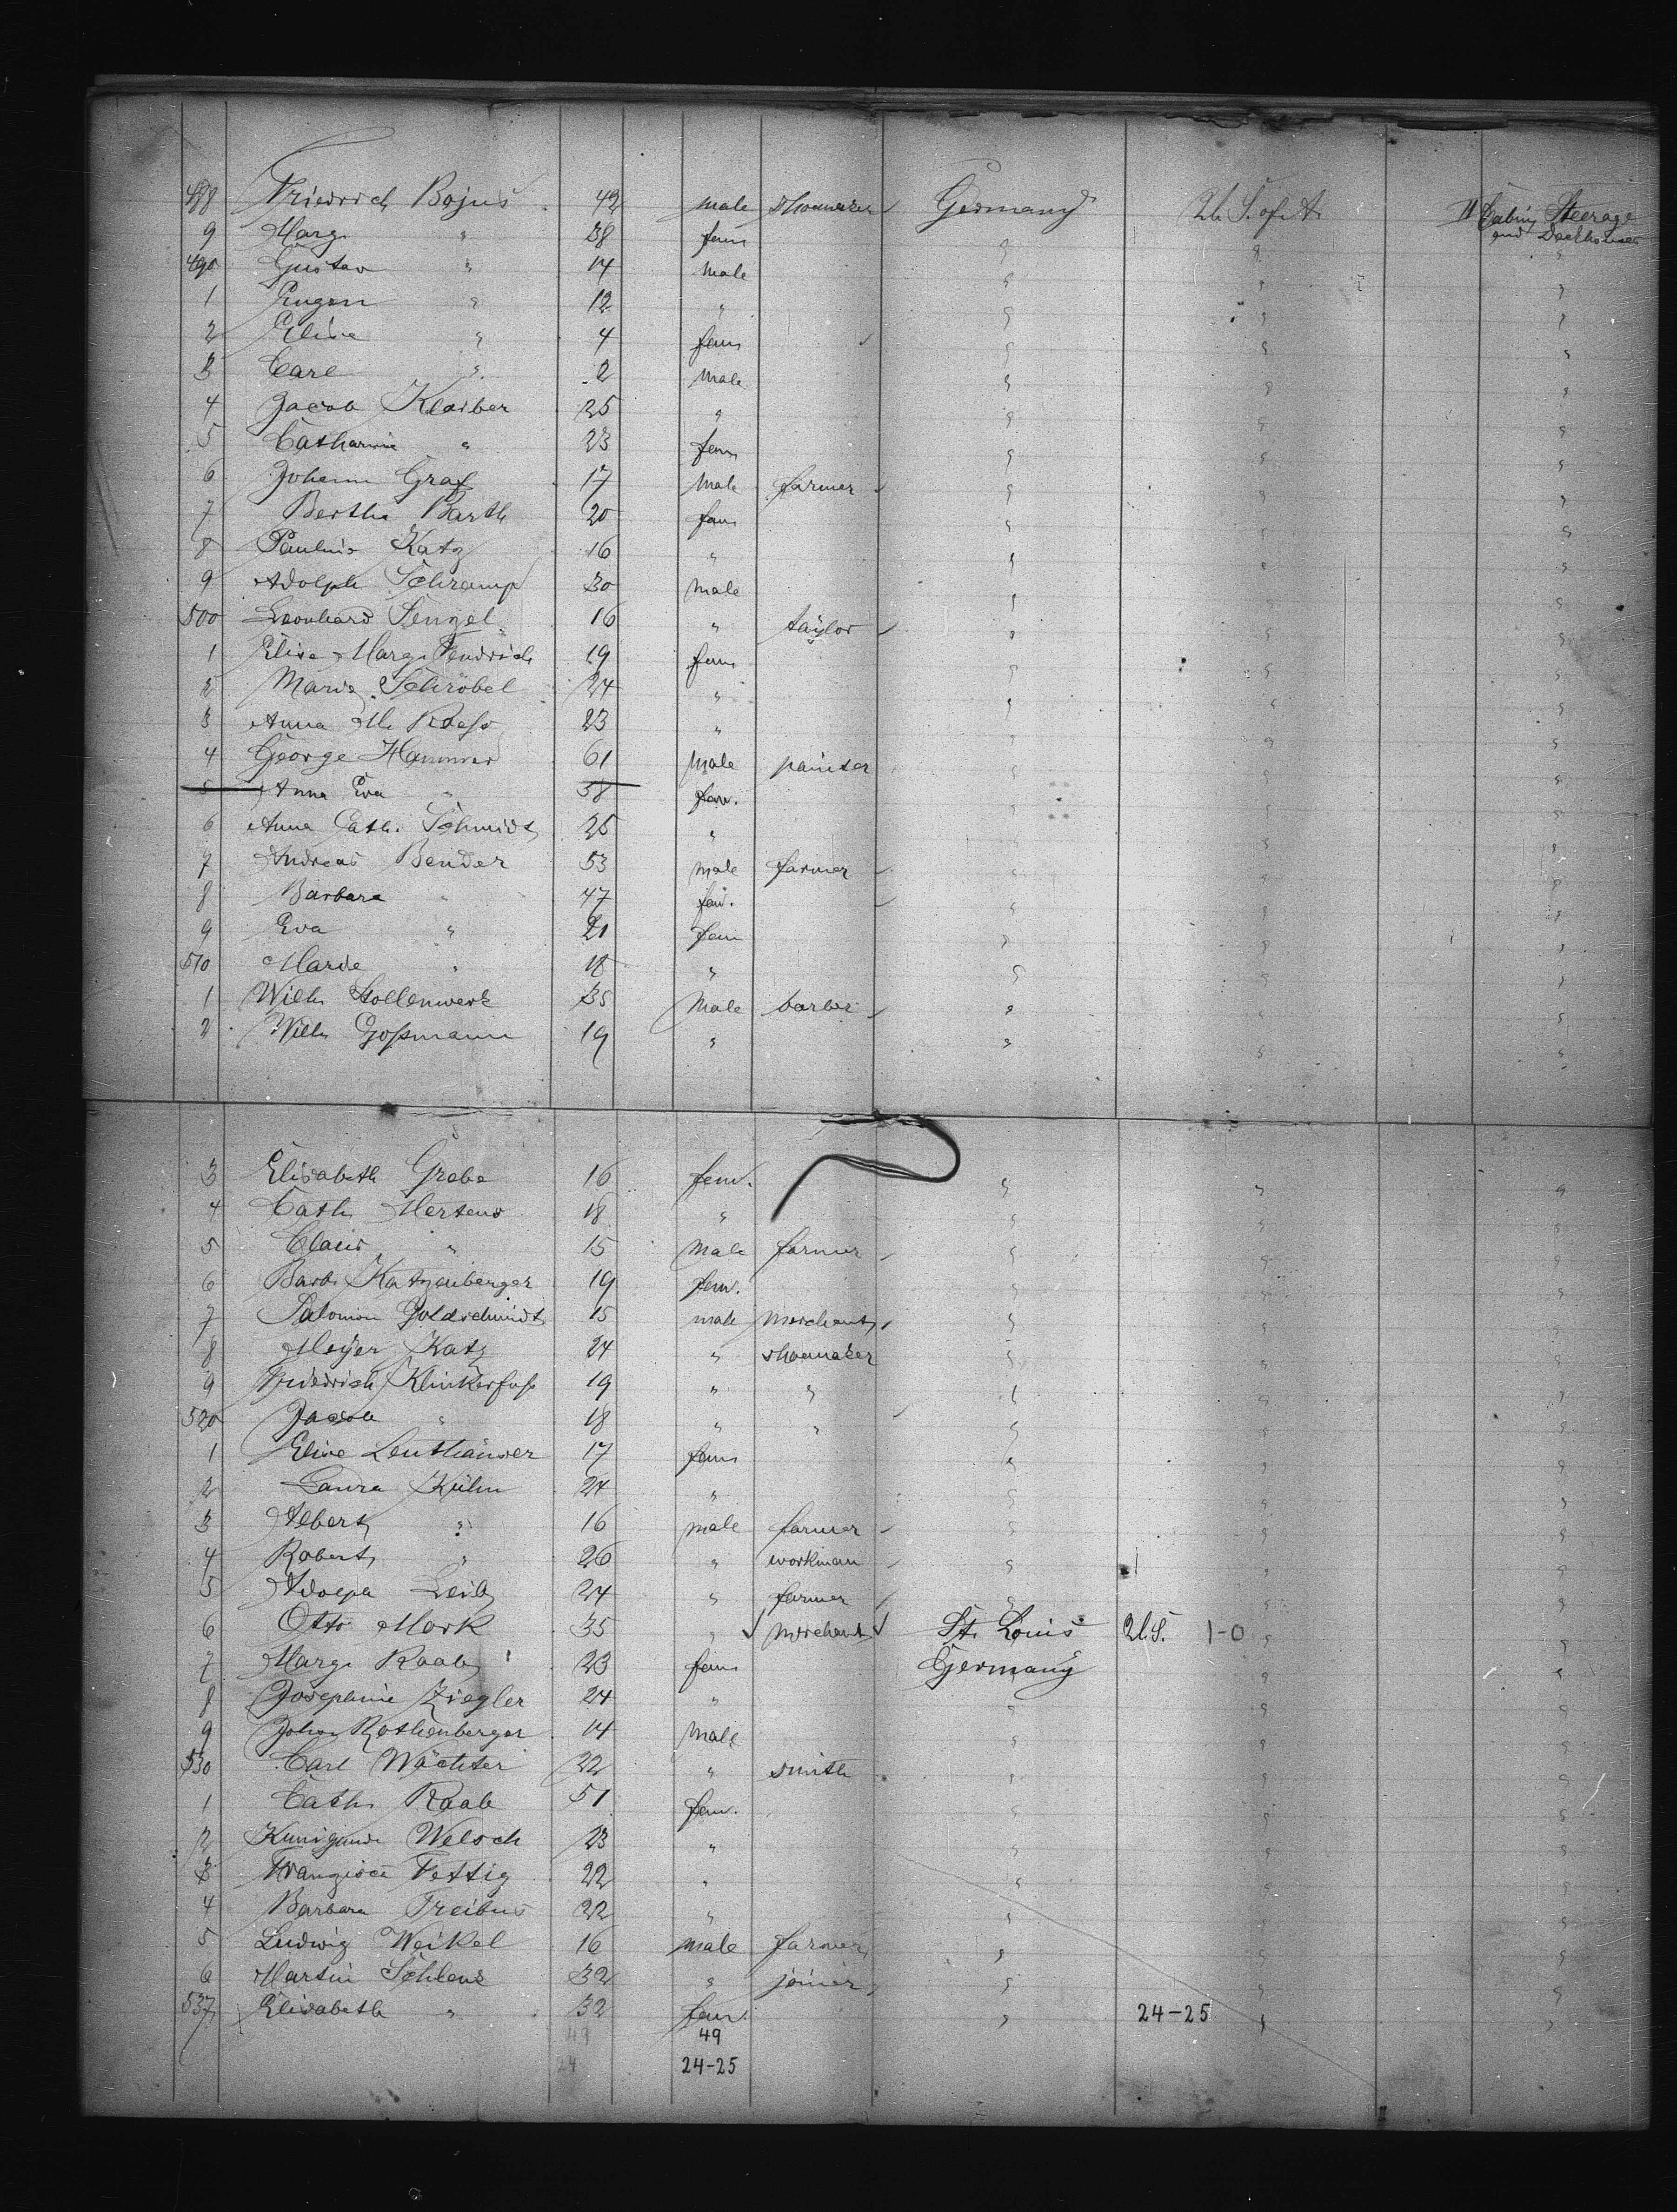 488 Friedrich Bojus 42 male shoemaker Germany U. S. of A. II Cabin, Steerage
and Deckhouses
9 Marg. " 38 fem " " "
490 Gustav " 14 male " " "
1 Eugen " 12 " " " "
2 Elise " 4 fem " " "
3 Carl " 2 male " " "
4 Jacob Klaiber 25 " " " "
5 Catharine " 23 fem " " "
6 Johann Graf 17 male farmer " " "
7 Bertha Barth 20 fem " " "
8 Pauline Katz 16 " " " "
9 Adolph Schramp 30 male " " "
500 Leonhard Sengel 16 " taylor " " "
1 Elise Marg. Fendrich 19 fem " " "
2 Marie Schröbel 24 " " " "
3 Anna M. 23 " " " "
4 George Hammer 61 male painter " " "
5 Anna Eva " 58 fem. " " "
6 Anna Cath. Schmidt 25 " " " "
7 Andreas Bender 53 male farmer " " "
8 Barbara " 47 fem. " " "
9 Eva " 21 fem " " "
510 Marie " 18 " " " "
1 Wilh. Stollenwerk 35 male barber " " "
2 Wilh. Goßmann 19 " " " "
3 Elisabeth Grebe 16 fem. " " "
4 Cath. Mertens 18 " " " "
5 Claus " 15 male farmer " " "
6 Barb. Katzenberger 19 fem. " " "
7 Salomon Goldschmidt 15 male merchant " " "
8 Meyer Katz 24 " shoemaker " " "
9 Friedrich Klinkerfuß 19 " " " " "
520 Jacob " 18 " " " " "
1 Elise Leuthäuser 17 fem " " "
2 Laura Kühn 24 " " " "
3 Albert " 16 male farmer " " "
4 Robert " 26 " workman " " "
5 Adolph Leib 24 " farmer " " "
6 Otto Mark 35 " merchant St. Louis U.S. 1-0 " "
7 Marg. Raab 23 fem Germany " "
8 Josephine Ziegler 24 " " " "
9 Johan Rothenberger 14 male " " "
530 Carl Wächter 22 " smith " " "
1 Cath. Raab 51 fem. " " "
2 Kunigunde Welsch 23 " " " "
3 Franzisca Fettig 22 " " " "
4 Barbara Treibus 22 " " " "
5 Ludwig Weikel 16 male farmer " " "
6 Martin Schlenz 32 " joiner " " "
537 Elisabeth " 32 fem. " 24-25 " "
49 49
24 24-25